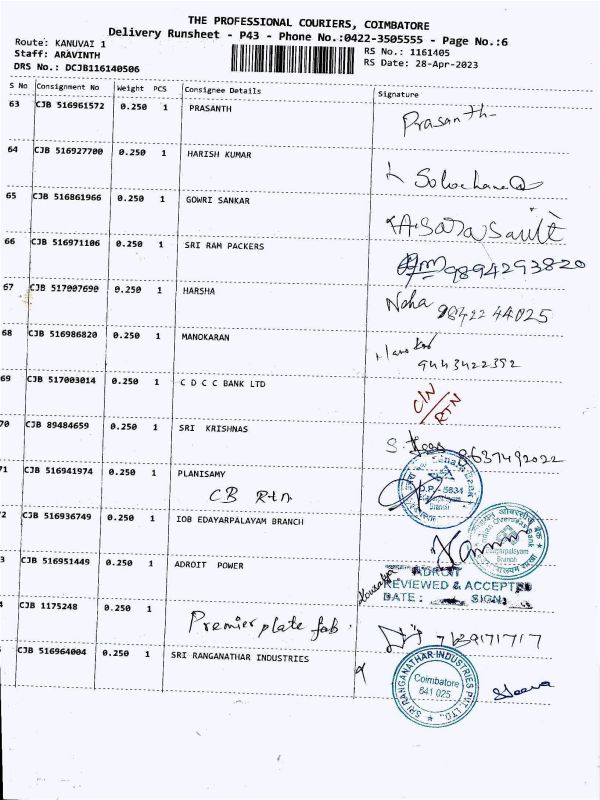 THE PROFESSIONAL COURIERS, COIMBATORE
Delivery Runsheet - P43 - Phone No.:0422-3505555 - Page No.:6
Route: KANUVAI 1
Staff: ARAVINTH
DRS No.: DCJB116140506
RS No.: 1161405
RS Date: 28-Apr-2023
S No Consignment No Weight PCS Consignee Details Signature
63 CJB 516961572 0.250 1 PRASANTH Prasanth
64 CJB 516927700 0.250 1 HARISH KUMAR
65 CJB 516861966 0.250 1 GOWRI SANKAR
66 CJB 516971106 0.250 1 SRI RAM PACKERS 9894293820
67 CJB 517007690 0.250 1 HARSHA Neha 9842244025
68 CJB 516986820 0.250 1 MANOKARAN 9443422352
69 CJB 517003014 0.250 1 C D C C BANK LTD C/N RTN
70 CJB 89484659 0.250 1 SRI KRISHNAS 8637492022
71 CJB 516941974 0.250 1 PLANISAMY
CB Rtn
2 CJB 516936749 0.250 1 IOB EDAYARPALAYAM BRANCH
Indian Overseas Bank
Branch
3 CJB 516951449 0.250 1 ADROIT POWER
ADROIT
REVIEWED & ACCEPTED
DATE: SIGN:
4 CJB 1175248 0.250 1
Premier plate fab. 7139171717
CJB 516964004 0.250 1 SRI RANGANATHAR INDUSTRIES
SRI RANGANATHAR INDUSTRIES PVT. LTD.,
Coimbatore
641 025